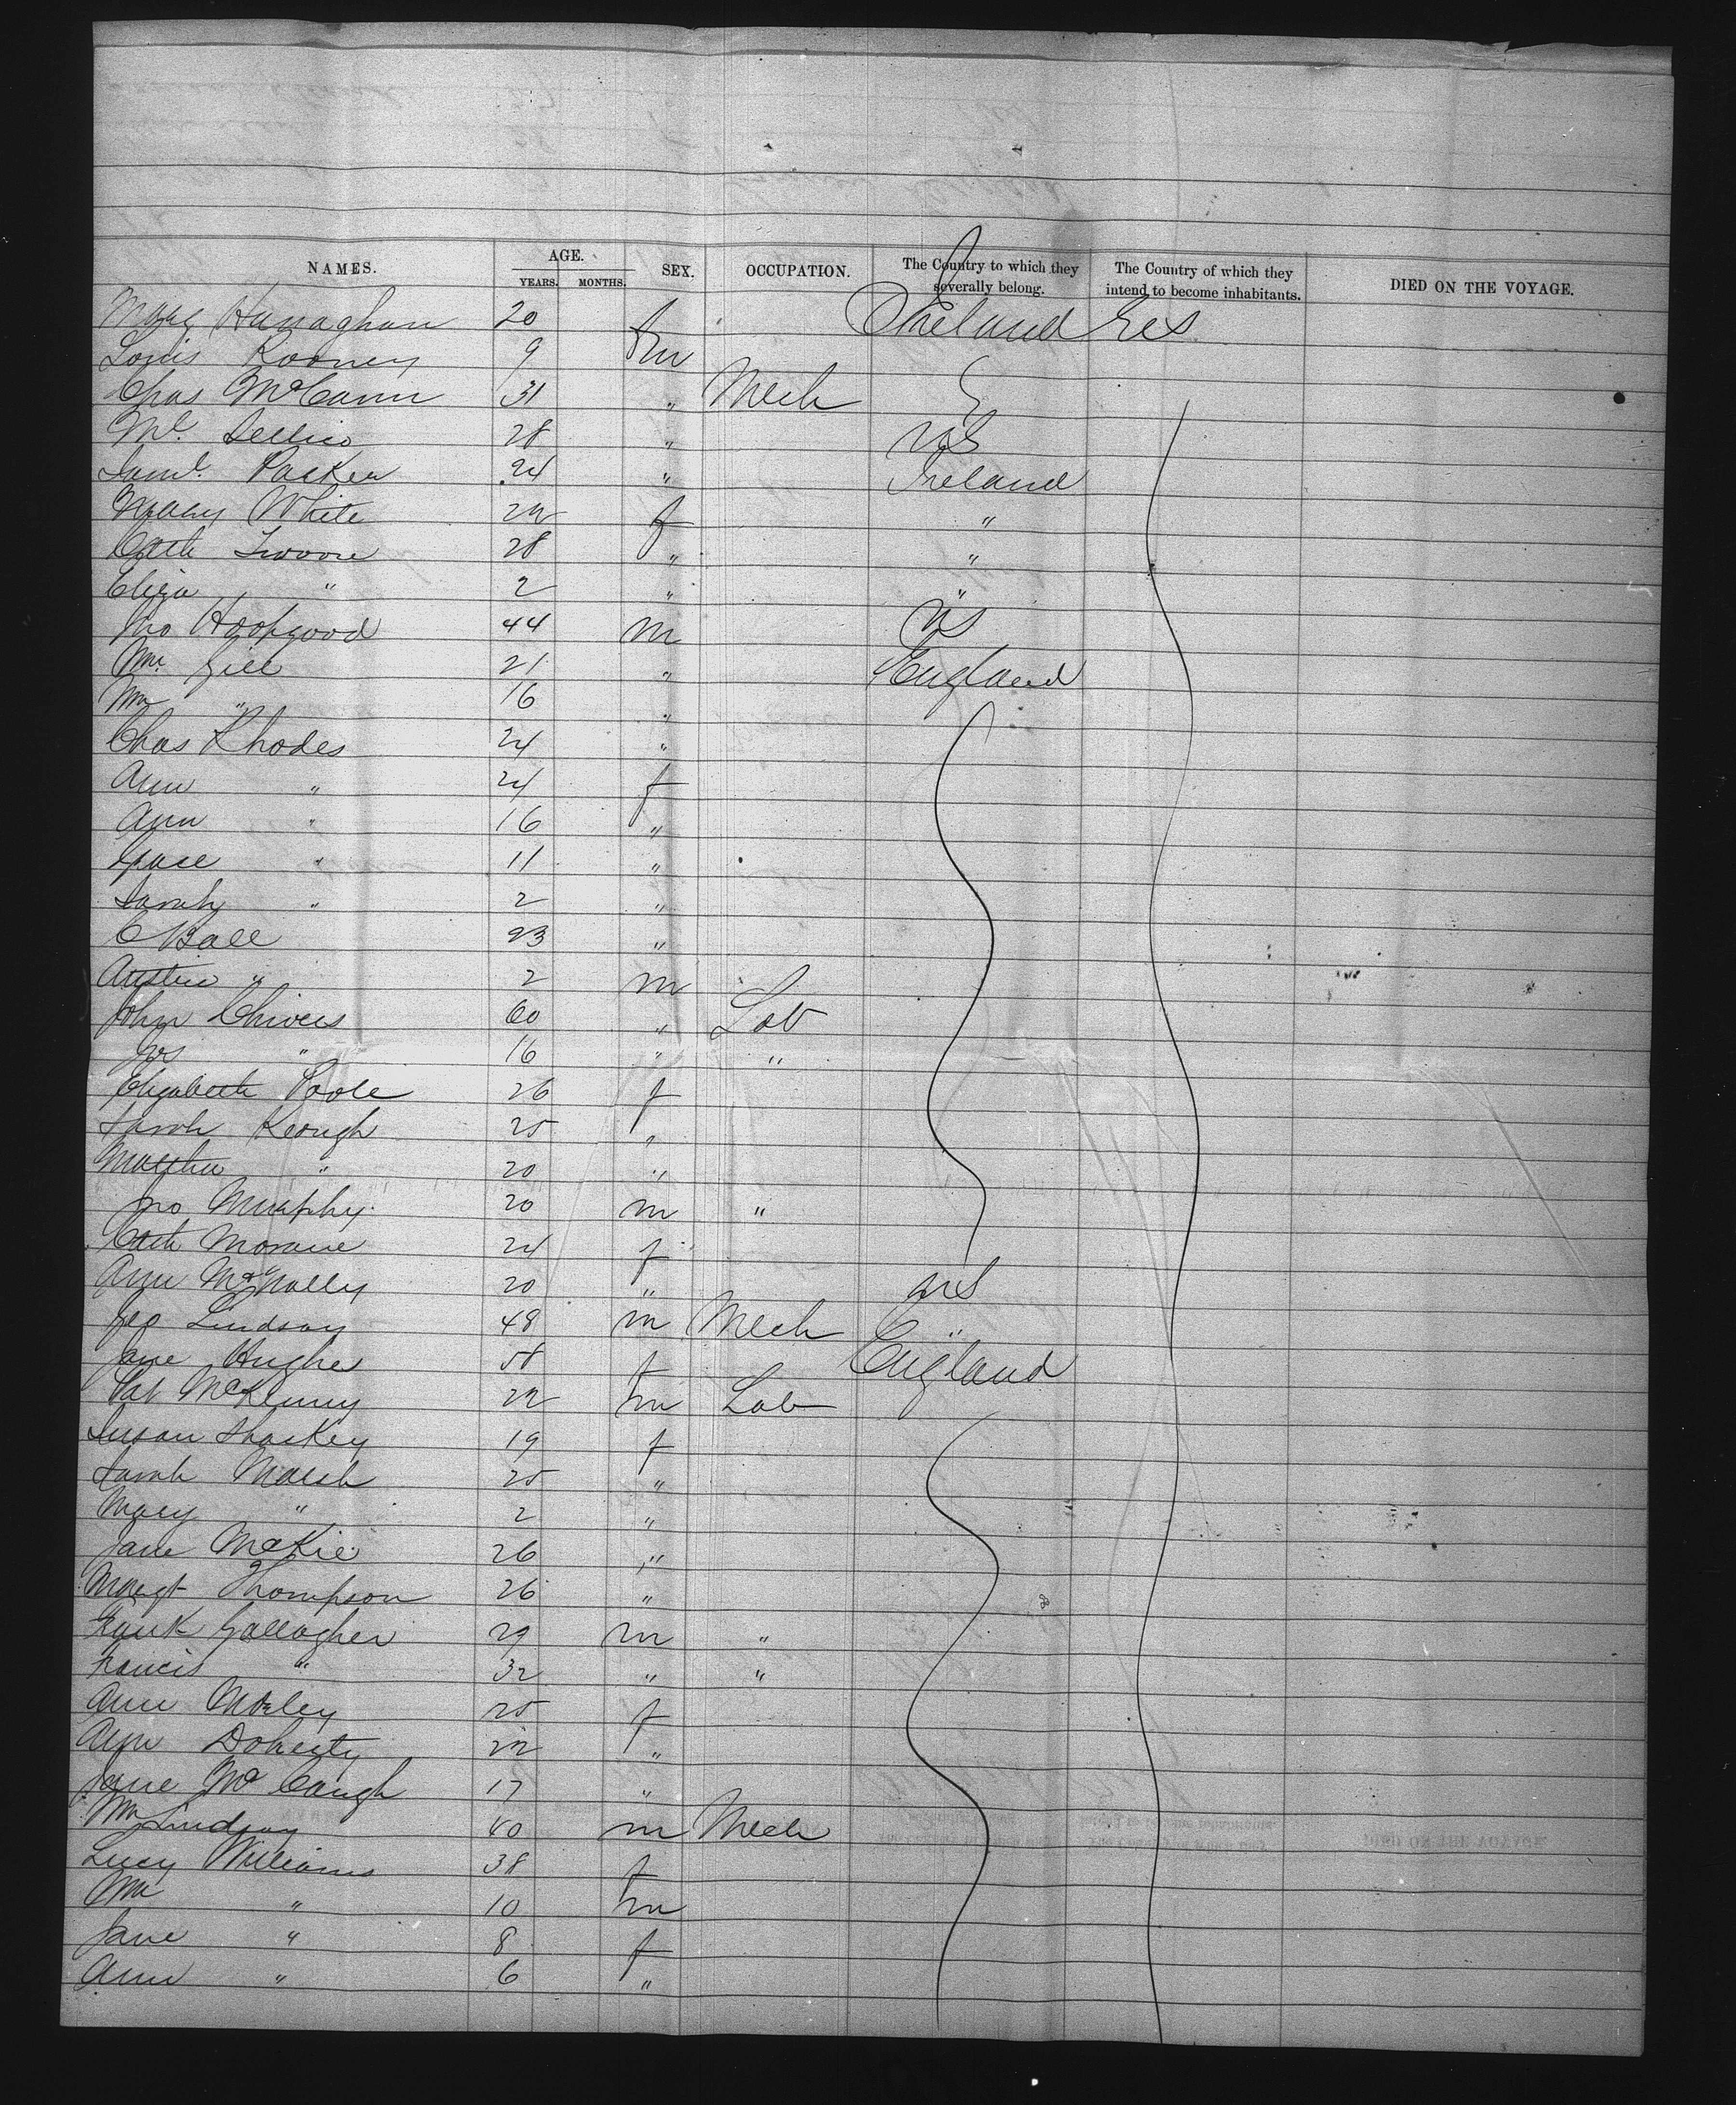 NAMES. AGE. YEARS. MONTHS. SEX. OCCUPATION. The Country to which they severally belong. The Country of which they intend to become inhabitants. DIED ON THE VOYAGE.
Marg Hanaghan 20 f Ireland
Louis Rooney 9 m
Chas McCann 31 " Mech
28 " US
Saml. Parker 24 " Ireland
Mary White 22 f "
Cath 28 " "
Eliza " 2 " "
Jno Hopgood 44 m US
Wm. Gill 21 " England
Wm " 16 "
Chas Rhodes 24 "
Ann " 24 f
Ann " 16 "
Grace " 11 "
Sarah " 2 "
C Ball 23 "
Austin " 2 m
John Chivers 60 " Lab
Jos " 16 " "
Elizabeth Poole 26 f
Sarah Keough 25 "
Martha " 20 "
Jno Murphy 20 m "
Cath Morane 24 f
Ann McNally 20 " US
Geo Lindsay 48 m Mech "
Jane Hughes 58 f England
Pat McKenny 22 m Lab
Susan Sharkey 19 f
Sarah Marsh 25 "
Mary " 2 "
Jane McKie 26 "
Margt Thompson 26 "
Frank Gallagher 29 m "
Francis " 32 " "
Ann Morley 25 f
Ann Doherty 22 "
Jane McCaugh 17 "
Wm Lindsay 40 m Mech
Lucy Williams 38 f
Wm " 10 m
Jane " 8 f
Ann " 6 "